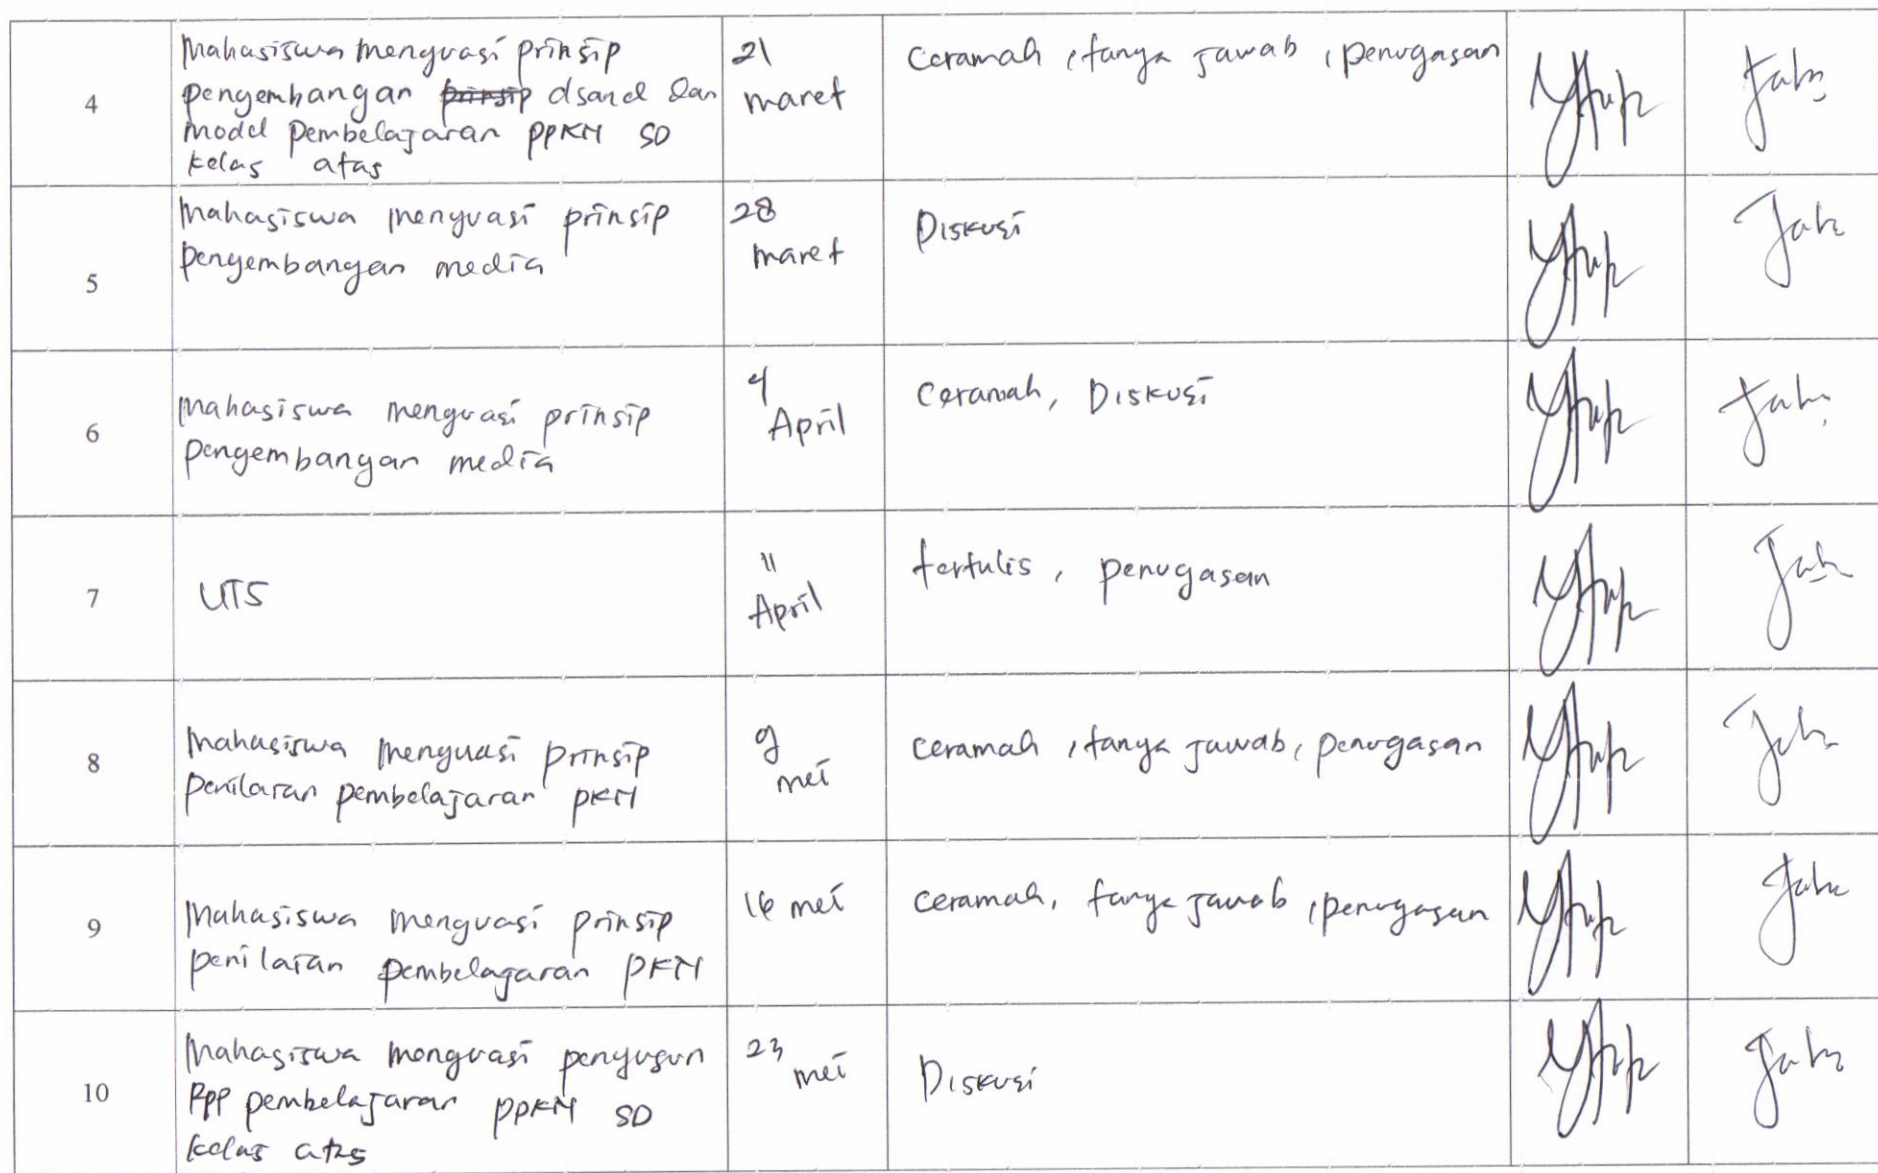 4
Mahasiswa menguasi prinsip
pengembangan prinsip dsanel dan
model pembelajaran PPKN SD
kelas atas
21
maret
Ceramah, tanya jawab, penugasan
5
Mahasiswa menguasi prinsip
pengembangan media
28
maret
Diskusi
6
Mahasiswa menguasi prinsip
pengembangan media
4
April
Ceramah, Diskusi
7
UTS
11
April
tertulis, penugasan
8
Mahasiswa menguasi prinsip
penilaian pembelajaran PKN
9
mei
ceramah, tanya jawab, penugasan
9
Mahasiswa menguasi prinsip
penilaian pembelajaran PKN
16 mei
ceramah, tanya jawab, penugasan
10
Mahasiswa menguasi penyusun
RPP pembelajaran PPKN SD
kelas atas
23
mei
Diskusi